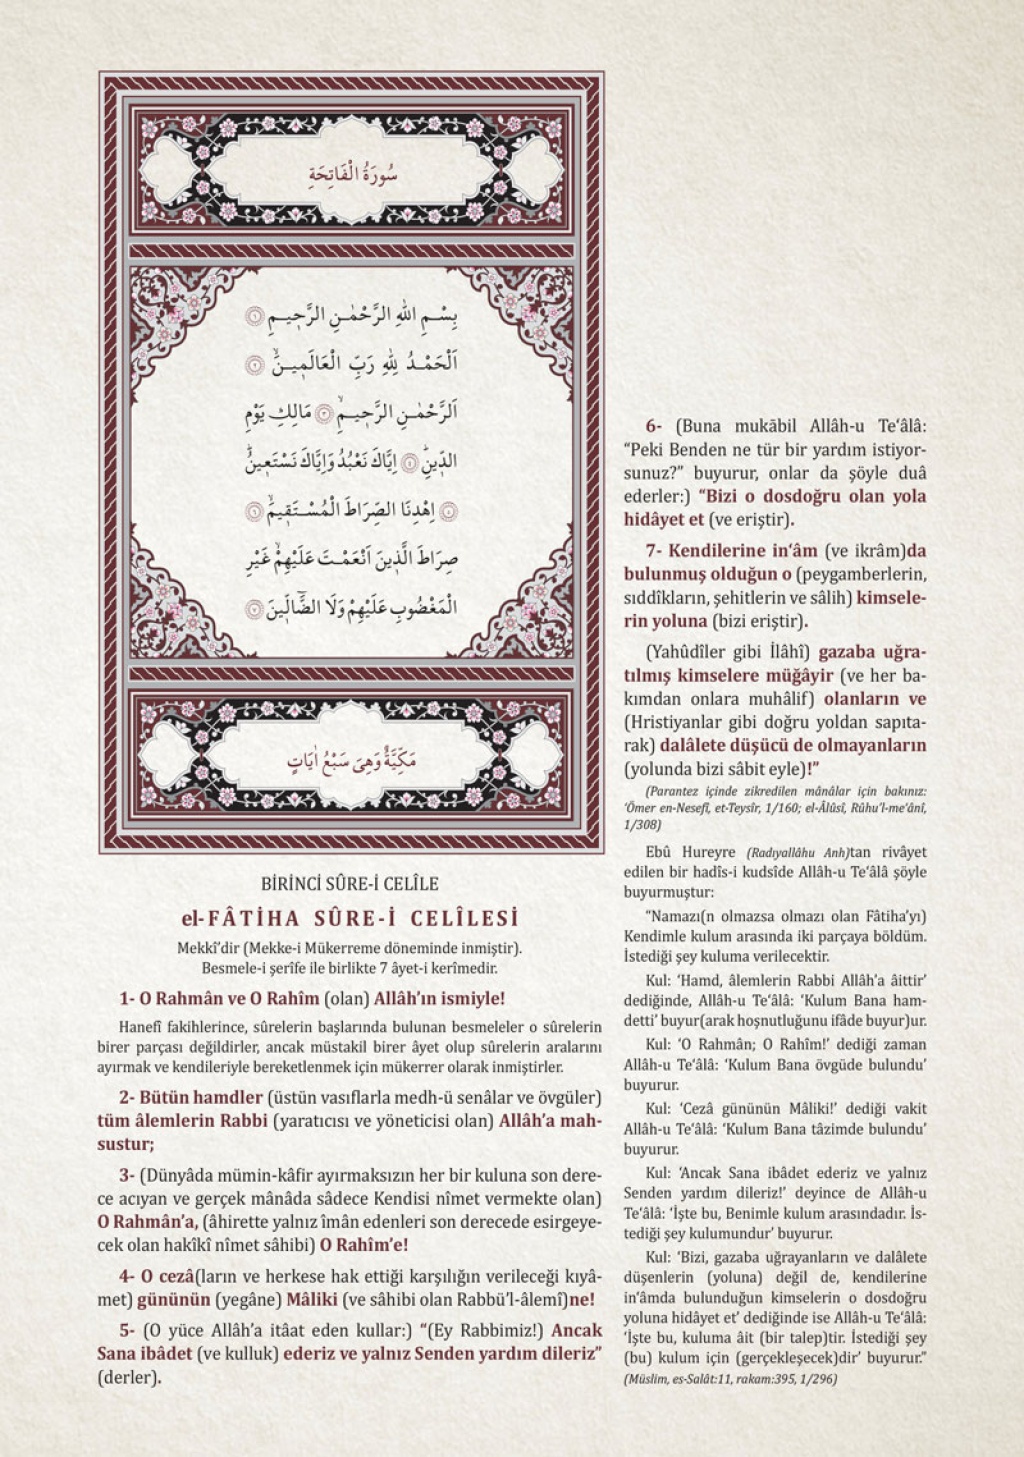 سُورَةُ الْفَاتِحَةِ
بِسْمِ اللّٰهِ الرَّحْمٰنِ الرَّح۪يمِ ﴿١﴾
اَلْحَمْدُ لِلّٰهِ رَبِّ الْعَالَم۪ينَۙ ﴿٢﴾
اَلرَّحْمٰنِ الرَّح۪يمِۙ ﴿٣﴾ مَالِكِ يَوْمِ
الدّ۪ينِۜ ﴿٤﴾ اِيَّاكَ نَعْبُدُ وَاِيَّاكَ نَسْتَع۪ينُۜ
﴿٥﴾ اِهْدِنَا الصِّرَاطَ الْمُسْتَق۪يمَۙ ﴿٦﴾
صِرَاطَ الَّذ۪ينَ اَنْعَمْتَ عَلَيْهِمْۙ غَيْرِ
الْمَغْضُوبِ عَلَيْهِمْ وَلَا الضَّٓالّ۪ينَ ﴿٧﴾
مَكِّيَّةٌ وَهِيَ سَبْعُ اٰيَاتٍ
BİRİNCİ SÛRE-İ CELÎLE
el-FÂTİHA SÛRE-İ CELÎLESİ
Mekkî’dir (Mekke-i Mükerreme döneminde inmiştir).
Besmele-i şerîfe ile birlikte 7 âyet-i kerîmedir.
1- O Rahmân ve O Rahîm (olan) Allâh’ın ismiyle!
Hanefî fakihlerince, sûrelerin başlarında bulunan besmeleler o sûrelerin
birer parçası değildirler, ancak müstakil birer âyet olup sûrelerin aralarını
ayırmak ve kendileriyle bereketlenmek için mükerrer olarak inmiştirler.
2- Bütün hamdler (üstün vasıflarla medh-ü senâlar ve övgüler)
tüm âlemlerin Rabbi (yaratıcısı ve yöneticisi olan) Allâh’a mah-
sustur;
3- (Dünyâda mümin-kâfir ayırmaksızın her bir kuluna son dere-
ce acıyan ve gerçek mânâda sâdece Kendisi nîmet vermekte olan)
O Rahmân’a, (âhirette yalnız îmân edenleri son derecede esirgeye-
cek olan hakîkî nîmet sâhibi) O Rahîm’e!
4- O cezâ(ların ve herkese hak ettiği karşılığın verileceği kıyâ-
met) gününün (yegâne) Mâliki (ve sâhibi olan Rabbü’l-âlemî)ne!
5- (O yüce Allâh’a itâat eden kullar:) “(Ey Rabbimiz!) Ancak
Sana ibâdet (ve kulluk) ederiz ve yalnız Senden yardım dileriz”
(derler).
6- (Buna mukābil Allâh-u Te‘âlâ:
“Peki Benden ne tür bir yardım istiyor-
sunuz?” buyurur, onlar da şöyle duâ
ederler:) “Bizi o dosdoğru olan yola
hidâyet et (ve eriştir).
7- Kendilerine in‘âm (ve ikrâm)da
bulunmuş olduğun o (peygamberlerin,
sıddîkların, şehitlerin ve sâlih) kimsele-
rin yoluna (bizi eriştir).
(Yahûdîler gibi İlâhî) gazaba uğra-
tılmış kimselere müğâyir (ve her ba-
kımdan onlara muhâlif) olanların ve
(Hristiyanlar gibi doğru yoldan sapıta-
rak) dalâlete düşücü de olmayanların
(yolunda bizi sâbit eyle)!”
(Parantez içinde zikredilen mânâlar için bakınız:
‘Ömer en-Nesefî, et-Teysîr, 1/160; el-Âlûsî, Rûhu’l-me‘ânî,
1/308)
Ebû Hureyre (Radıyallâhu Anh)tan rivâyet
edilen bir hadîs-i kudsîde Allâh-u Te‘âlâ şöyle
buyurmuştur:
“Namazı(n olmazsa olmazı olan Fâtiha’yı)
Kendimle kulum arasında iki parçaya böldüm.
İstediği şey kuluma verilecektir.
Kul: ‘Hamd, âlemlerin Rabbi Allâh’a âittir’
dediğinde, Allâh-u Te‘âlâ: ‘Kulum Bana ham-
detti’ buyur(arak hoşnutluğunu ifâde buyur)ur.
Kul: ‘O Rahmân; O Rahîm!’ dediği zaman
Allâh-u Te‘âlâ: ‘Kulum Bana övgüde bulundu’
buyurur.
Kul: ‘Cezâ gününün Mâliki!’ dediği vakit
Allâh-u Te‘âlâ: ‘Kulum Bana tâzimde bulundu’
buyurur.
Kul: ‘Ancak Sana ibâdet ederiz ve yalnız
Senden yardım dileriz!’ deyince de Allâh-u
Te‘âlâ: ‘İşte bu, Benimle kulum arasındadır. İs-
tediği şey kulumundur’ buyurur.
Kul: ‘Bizi, gazaba uğrayanların ve dalâlete
düşenlerin (yoluna) değil de, kendilerine
in‘âmda bulunduğun kimselerin o dosdoğru
yoluna hidâyet et’ dediğinde ise Allâh-u Te‘âlâ:
‘İşte bu, kuluma âit (bir talep)tir. İstediği şey
(bu) kulum için (gerçekleşecek)dir’ buyurur.”
(Müslim, es-Salât:11, rakam:395, 1/296)